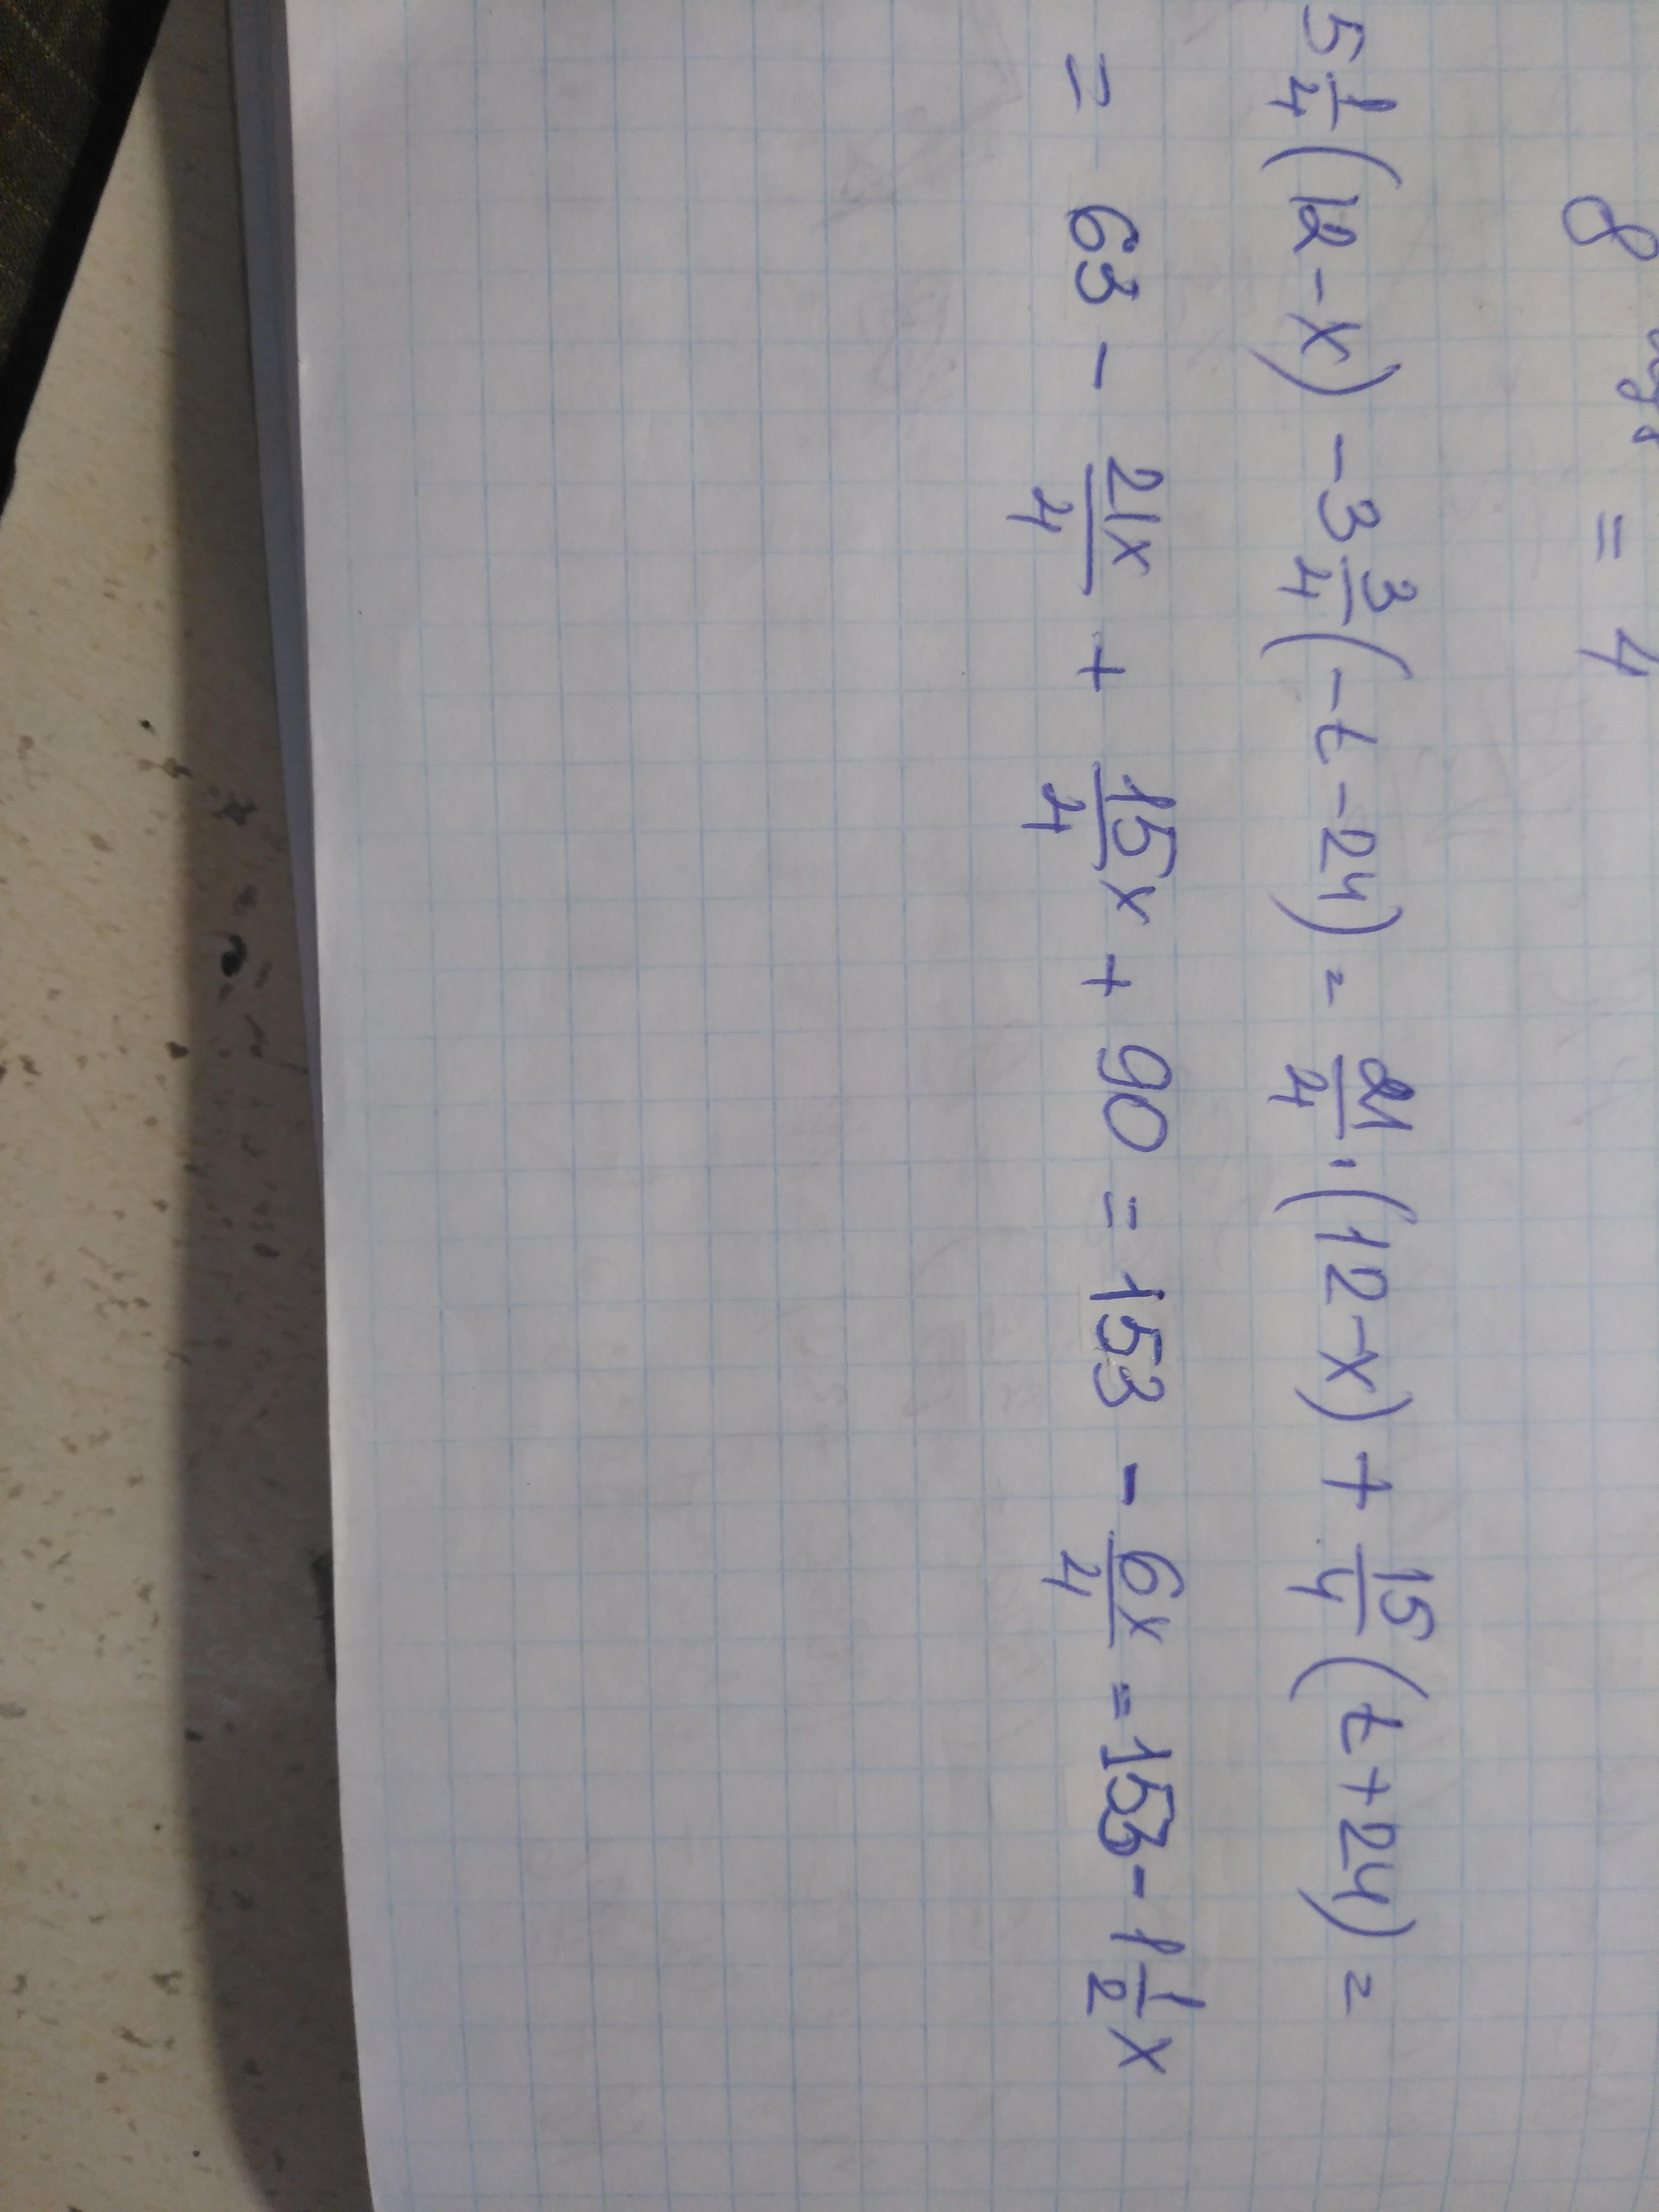 8 = 4
5 1/4 (12-x) - 3 3/4 (-t-24) = 21/4 · (12-x) + 15/4 (t+24) =
= 63 - 21x/4 + 15/4 x + 90 = 153 - 6x/4 = 153 - 1 1/2 x